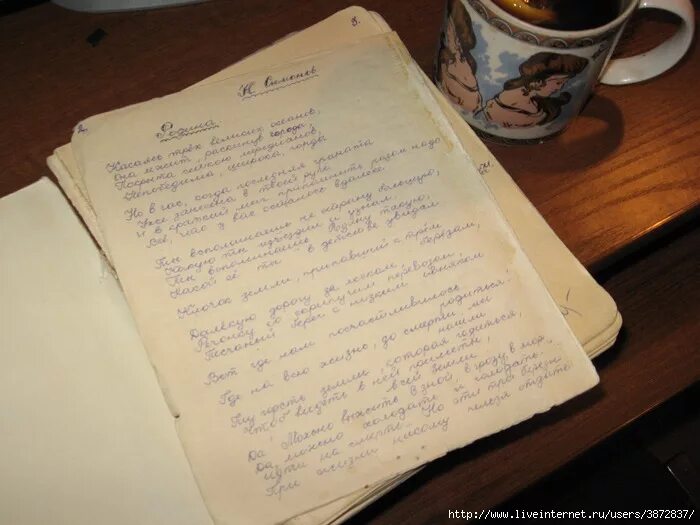 2.
3.
К Симонов
Родина
Касаясь трёх великих океанов,
Она лежит, раскинув города,
Покрыта сеткою меридианов,
Непобедима, широка, горда
Но в час, когда последняя граната
Уже занесена в твоей руке
И в краткий миг припомнить разом надо
Всё, что у нас осталось вдалеке,
Ты вспоминаешь не страну большую,
Какую ты изъездил и узнал,
Ты вспоминаешь Родину такую,
Какой её ты в детстве увидал
Клочок земли, припавший к трём
берёзам,
Далёкую дорогу за леском,
Речонку со скрипучим перевозом,
Песчаный берег с низким ивняком
Вот где нам посчастливилось
родиться.
Где на всю жизнь, до смерти, мы
нашли
Ту горсть земли, которая годиться,
Чтоб видеть в ней приметы
всей земли
Да! Можно выжить в зной, в грозу в мор.
Да, можно холодать и голодать.
Идти на смерть. Но эти три берёзы
При жизни никому нельзя отдать
http://www.liveinternet.ru/users/3872837/